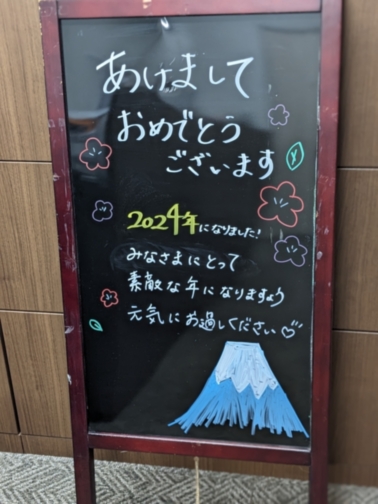 あけまして
おめでとう
ございます
2024年になりました!
みなさまにとって
素敵な年になりますよう
元気にお過しください♡